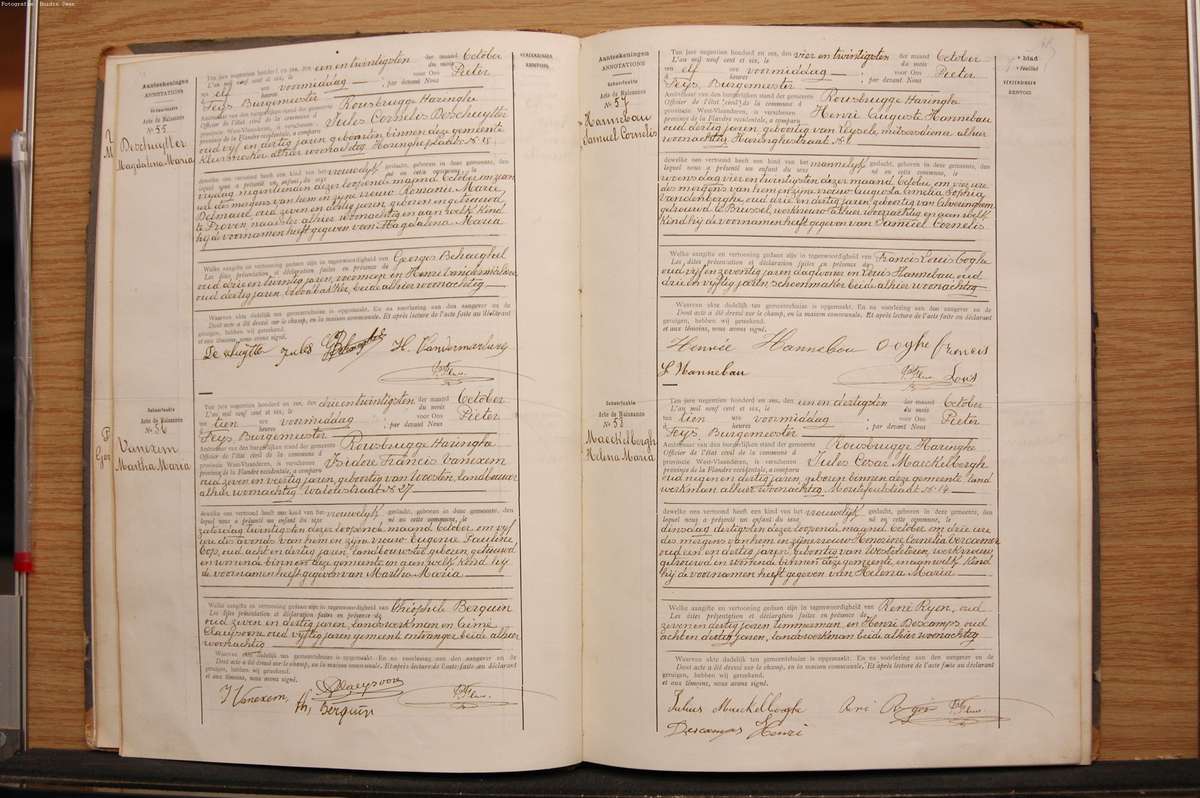 Fotografie: Houdin Jean
Aanteekeningen
ANNOTATIONS
Geboorteakte
Acte de Naissance
No 55
Deschuytter
Magdalena Maria
Ten jare negentien honderd en zes, den een en twintigsten der maand October
L'an mil neuf cent et six, le du mois
ten elf ure voormiddag voor Ons Pieter
à heures ; par devant Nous
Feys, Burgemeester
Ambtenaar van den burgerlijken stand der gemeente Rousbrugge Haringhe
Officier de l'état civil de la commune d
provincie West-Vlaanderen, is verschenen Jules Cornelis Deschuytter
province de la Flandre occidentale, a comparu
oud vijf en dertig jaren geboren binnen deze gemeente
kleermaker alhier woonachtig Haringheplaats No 15
dewelke ons vertoond heeft een kind van het vrouwelijk geslacht, geboren in deze gemeente, den
lequel nous a présenté un enfant du sexe né en cette commune, le
vrijdag negentienden dezer loopende maand October om zeven
ure des morgens van hem en zijne vrouw Romanie Marie
oud zeven en dertig jaren, geboren en getrouwd
te Proven naaister alhier woonachtig en aan welk kind
hij de voornamen heeft gegeven van Magdalena Maria
Welke aangifte en vertooning gedaan zijn in tegenwoordigheid van Georges Behaeghel
Les dites présentation et déclaration faites en présence de
oud drie en twintig jaren, voorman en Henri Vandermarliere
oud dertig jaren, beide alhier woonachtig
Waarvan akte dadelijk ten gemeentehuize is opgemaakt. En na voorlezing aan den aangever en de
Dont acte a été dressé sur le champ, en la maison communale. Et après lecture de l'acte faite au déclarant
getuigen, hebben wij geteekend.
et aux témoins, nous avons signé.
Jules H. Vandermarliere
Geboorteakte
Acte de Naissance
No 56
Vanexem
Martha Maria
Ten jare negentien honderd en zes, den drie en twintigsten der maand October
L'an mil neuf cent et six, le du mois
ten tien ure voormiddag voor Ons Pieter
à heures ; par devant Nous
Feys Burgemeester
Ambtenaar van den burgerlijken stand der gemeente Rousbrugge Haringhe
Officier de l'état civil de la commune d
provincie West-Vlaanderen, is verschenen Isidore Francis Vanexem
province de la Flandre occidentale, a comparu
oud zeven en veertig jaren, geboortig van Woesten, landbouwer
alhier woonachtig, No 27
dewelke ons vertoond heeft een kind van het vrouwelijk geslacht, geboren in deze gemeente, den
lequel nous a présenté un enfant du sexe né en cette commune, le
zaterdag twintigsten dezer loopende maand October om vijf
ure des avonds van hem en zijne vrouw Eugenie Pauline
Cop, oud acht en dertig jaren, landbouwster, geboren getrouwd
en wonende binnen deze gemeente en aan welk kind hij
de voornamen heeft gegeven van Martha Maria
Welke aangifte en vertooning gedaan zijn in tegenwoordigheid van Théophile Berquin
Les dites présentation et déclaration faites en présence de
oud zeven en dertig jaren, landswerkman en Ciriné
Claeysoone oud vijftig jaren gemeente ontvanger beide alhier
woonachtig
Waarvan akte dadelijk ten gemeentehuize is opgemaakt. En na voorlezing aan den aangever en de
Dont acte a été dressé sur le champ, en la maison communale. Et après lecture de l'acte faite au déclarant
getuigen, hebben wij geteekend.
et aux témoins, nous avons signé.
I Vanexem, Claeysoone
Th, Berquin
VERZENDINGEN
RENVOIS
Aanteekeningen
ANNOTATIONS
Geboorteakte
Acte de Naissance
No 57
Hannebau
Samuel Cornelis
Ten jare negentien honderd en zes, den vier en twintigsten der maand October
L'an mil neuf cent et six, le du mois
ten elf ure voormiddag voor Ons Pieter
à heures ; par devant Nous
Feys, Burgemeester
Ambtenaar van den burgerlijken stand der gemeente Rousbrugge Haringhe
Officier de l'état civil de la commune d
provincie West-Vlaanderen, is verschenen Henri Auguste Hannebau
province de la Flandre occidentale, a comparu
oud dertig jaren, geboortig van Leysele alhier
woonachtig Haringhestraat No 1
dewelke ons vertoond heeft een kind van het mannelijk geslacht, geboren in deze gemeente, den
lequel nous a présenté un enfant du sexe né en cette commune, le
woensdag vier en twintigsten dezer maand October om vier ure
des morgens van hem en zijne vrouw Augusta Cornelia Sophia
Vandenberghe oud drie en dertig jaren geboortig van Alveringhem
getrouwd te Brussel, werkvrouw alhier woonachtig en aan welk
kind hij de voornamen heeft gegeven van Samuel Cornelis
Welke aangifte en vertooning gedaan zijn in tegenwoordigheid van Francis Louis Ooghe
Les dites présentation et déclaration faites en présence de
oud vijf en zeventig jaren, dagloner en Louis Hannebau oud
drie en vijftig jaren schoenmaker beide alhier woonachtig
Waarvan akte dadelijk ten gemeentehuize is opgemaakt. En na voorlezing aan den aangever en de
Dont acte a été dressé sur le champ, en la maison communale. Et après lecture de l'acte faite au déclarant
getuigen, hebben wij geteekend.
et aux témoins, nous avons signé.
Henrie Hannebau Ooghe francis
L Hannebau Louis
Geboorteakte
Acte de Naissance
No 58
Maeckelbergh
Helena Maria
Ten jare negentien honderd en zes, den een en dertigsten der maand October
L'an mil neuf cent et six, le du mois
ten tien ure voormiddag voor Ons Pieter
à heures ; par devant Nous
Feys Burgemeester
Ambtenaar van den burgerlijken stand der gemeente Rousbrugge Haringhe
Officier de l'état civil de la commune d
provincie West-Vlaanderen, is verschenen Jules Cesar Maeckelbergh
province de la Flandre occidentale, a comparu
oud negen en dertig jaren, geboren binnen deze gemeente land
werkman alhier woonachtig No 14
dewelke ons vertoond heeft een kind van het vrouwelijk geslacht, geboren in deze gemeente, den
lequel nous a présenté un enfant du sexe né en cette commune, le
dinsdag dertigsten dezer loopende maand October om drie ure
des morgens van hem en zijne vrouw Honorine Cornelia Vercaemer
oud een en dertig jaren, geboortig van Westvleteren, werkvrouw
getrouwd en wonende binnen deze gemeente en aan welk kind
hij de voornamen heeft gegeven van Helena Maria
Welke aangifte en vertooning gedaan zijn in tegenwoordigheid van René Ryon, oud
Les dites présentation et déclaration faites en présence de
zeven en dertig jaren timmerman, en Henri Descamps oud
acht en dertig jaren, landswerkman beide alhier woonachtig
Waarvan akte dadelijk ten gemeentehuize is opgemaakt. En na voorlezing aan den aangever en de
Dont acte a été dressé sur le champ, en la maison communale. Et après lecture de l'acte faite au déclarant
getuigen, hebben wij geteekend.
et aux témoins, nous avons signé.
Julius Maeckelberghe
Descamps Henri
e blad
e feuillet
VERZENDINGEN
RENVOIS